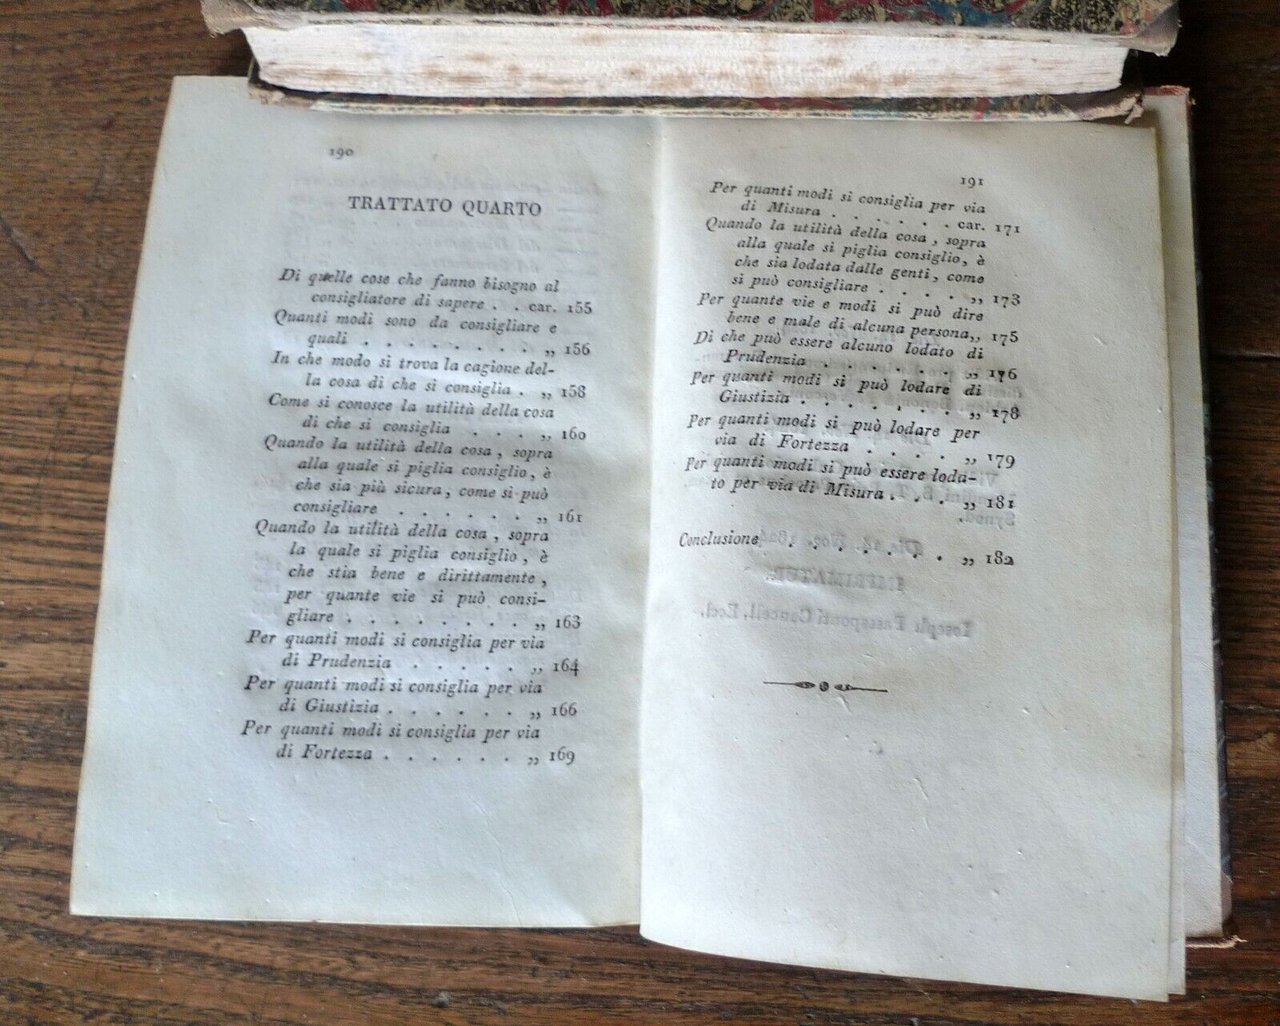 190
TRATTATO QUARTO
Di quelle cose che fanno bisogno al
consigliatore di sapere . . car. 155
Quanti modi sono da consigliare e
quali . . . . . . . . „ 156
In che modo si trova la cagione del-
la cosa di che si consiglia . „ 158
Come si conosce la utilità della cosa
di che si consiglia . . . „ 160
Quando la utilità della cosa, sopra
alla quale si piglia consiglio, è
che sia più sicura, come si può
consigliare . . . . . . „ 161
Quando la utilità della cosa, sopra
la quale si piglia consiglio, è
che stia bene e dirittamente,
per quante vie si può consi-
gliare . . . . . . . . „ 163
Per quanti modi si consiglia per via
di Prudenzia . . . . . „ 164
Per quanti modi si consiglia per via
di Giustizia . . . . . . „ 166
Per quanti modi si consiglia per via
di Fortezza . . . . . . „ 169
191
Per quanti modi si consiglia per via
di Misura . . . . . . car. 171
Quando la utilità della cosa, sopra
alla quale si piglia consiglio, è
che sia lodata dalle genti, come
si può consigliare . . . . „ 173
Per quante vie e modi si può dire
bene e male di alcuna persona„ 175
Di che può essere alcuno lodato di
Prudenzia . . . . . . „ 176
Per quanti modi si può lodare di
Giustizia . . . . . . . „ 178
Per quanti modi si può lodare per
via di Fortezza . . . . „ 179
Per quanti modi si può essere loda-
to per via di Misura . . . „ 181
Conclusione . . . . . . . „ 182